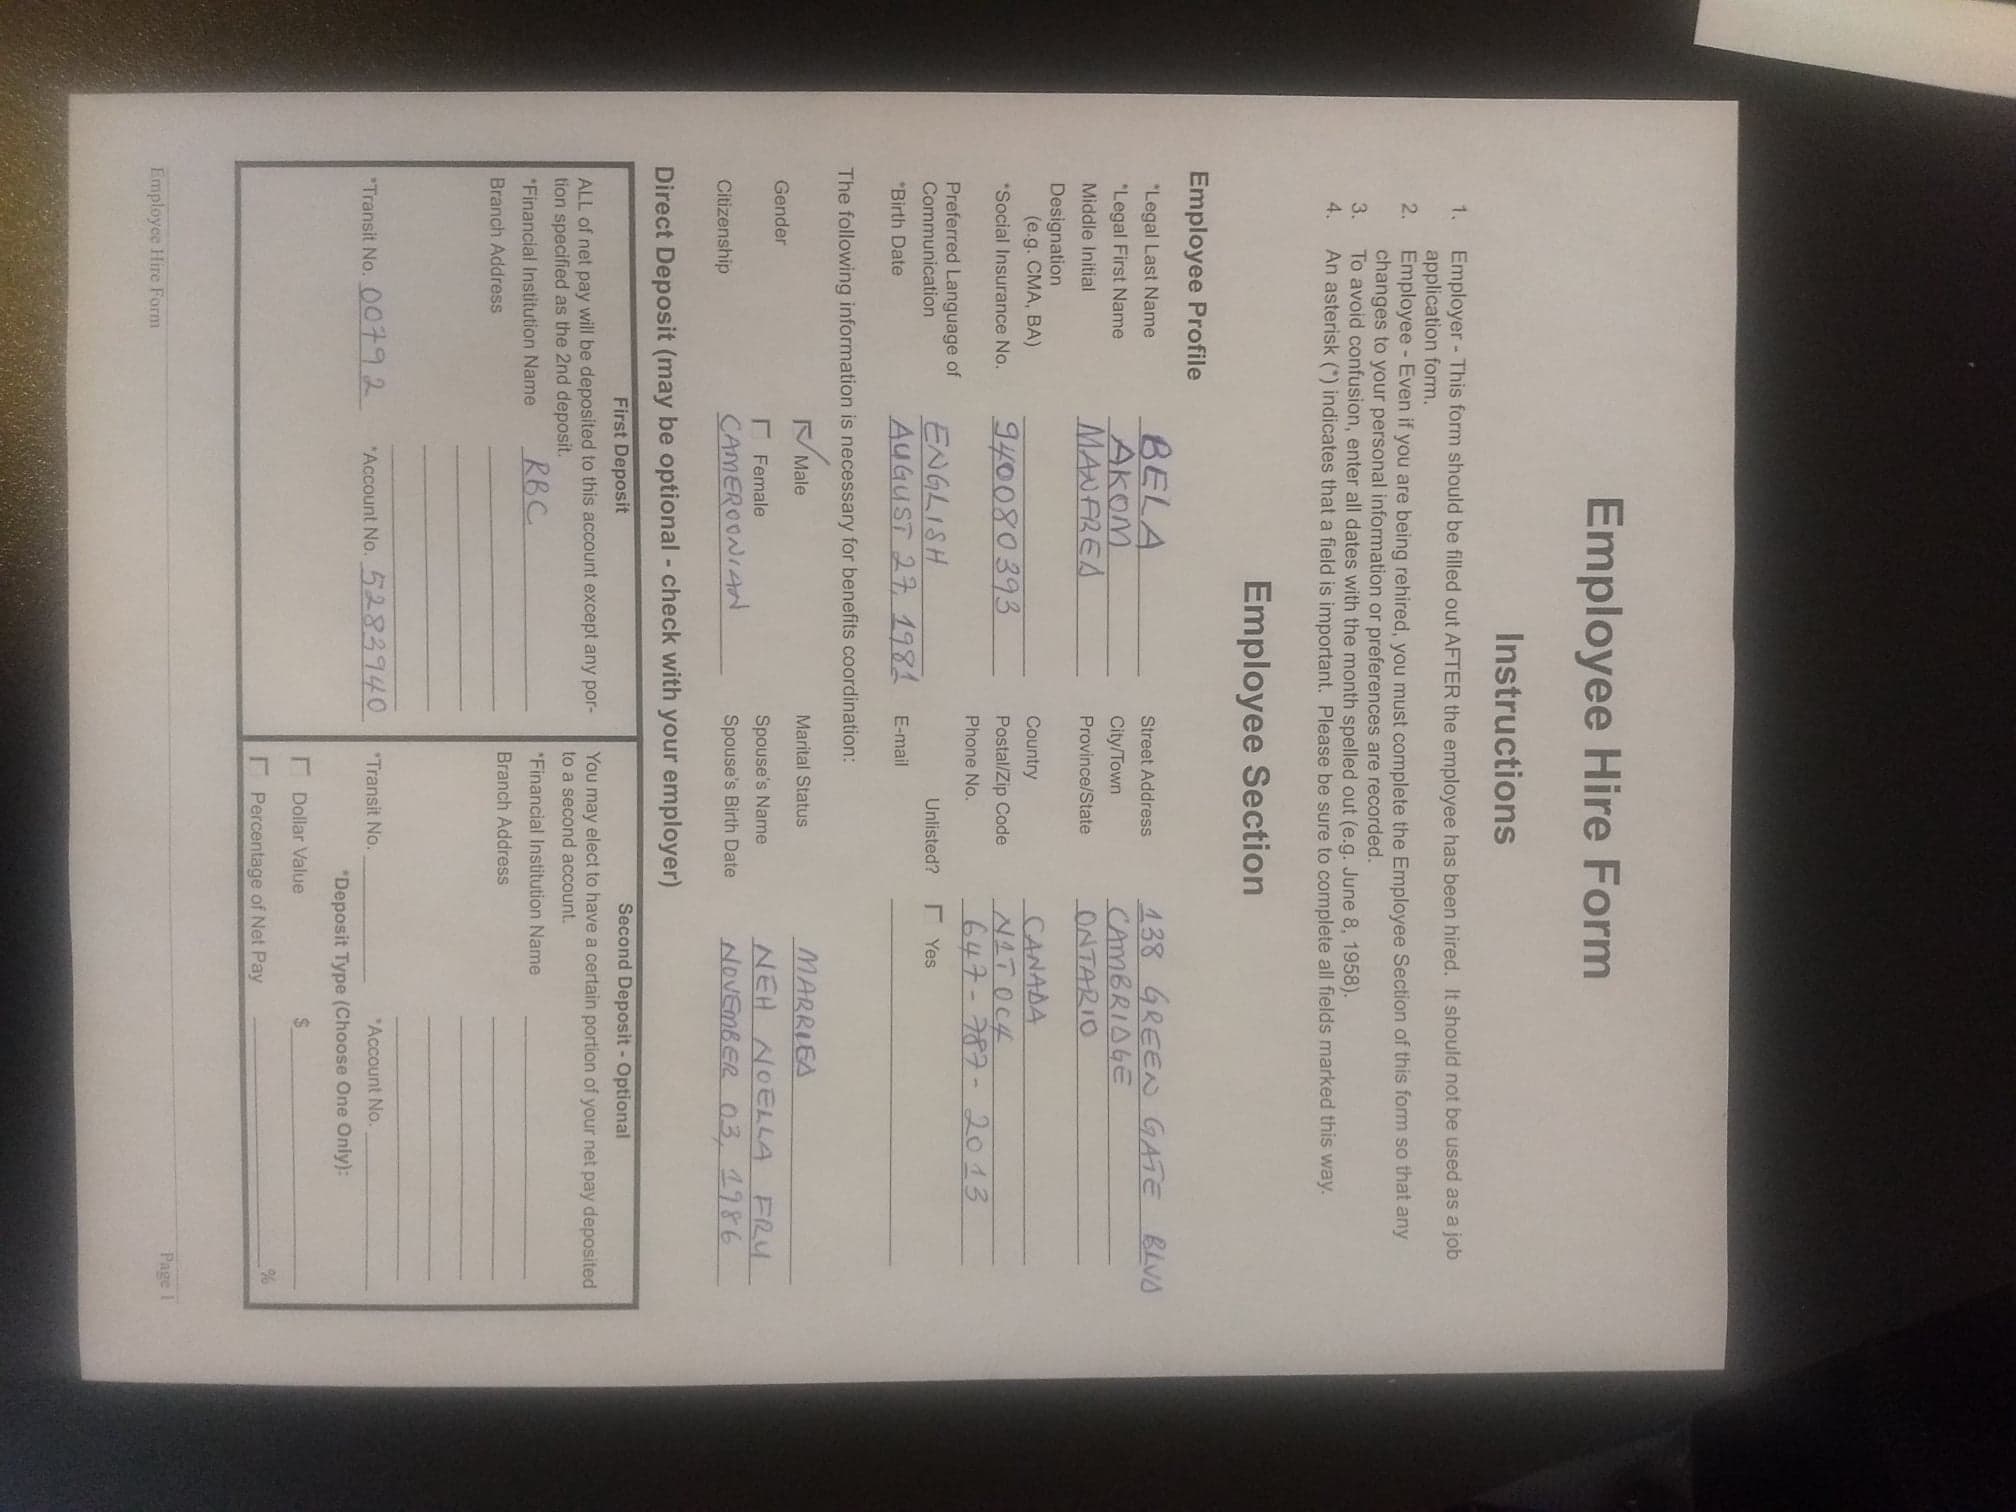 Employee Hire Form
Instructions
1. Employer - This form should be filled out AFTER the employee has been hired. It should not be used as a job
application form.
2. Employee - Even if you are being rehired, you must complete the Employee Section of this form so that any
changes to your personal information or preferences are recorded.
3. To avoid confusion, enter all dates with the month spelled out (e.g. June 8, 1958).
4. An asterisk (*) indicates that a field is important. Please be sure to complete all fields marked this way.
Employee Section
Employee Profile
*Legal Last Name BELA
*Legal First Name AKOM
Middle Initial MANFRED
Designation
(e.g. CMA, BA)
*Social Insurance No. 940080393
Preferred Language of
Communication ENGLISH
*Birth Date AUGUST 27, 1981
Street Address 138 GREEN GATE BLVD
City/Town CAMBRIDGE
Province/State ONTARIO
Country CANADA
Postal/Zip Code N1T 0C4
Phone No. 647-787-2013
Unlisted? Yes
E-mail
The following information is necessary for benefits coordination:
Gender Male
Female
Citizenship CAMEROONIAN
Marital Status MARRIED
Spouse's Name NEH NOELLA FRU
Spouse's Birth Date NOVEMBER 03, 1986
Direct Deposit (may be optional - check with your employer)
First Deposit
ALL of net pay will be deposited to this account except any por-
tion specified as the 2nd deposit.
*Financial Institution Name RBC
Branch Address
*Transit No. 00792 *Account No. 5283940
Second Deposit - Optional
You may elect to have a certain portion of your net pay deposited
to a second account.
*Financial Institution Name
Branch Address
*Transit No. *Account No.
*Deposit Type (Choose One Only):
Dollar Value $
Percentage of Net Pay %
Employee Hire Form Page 1